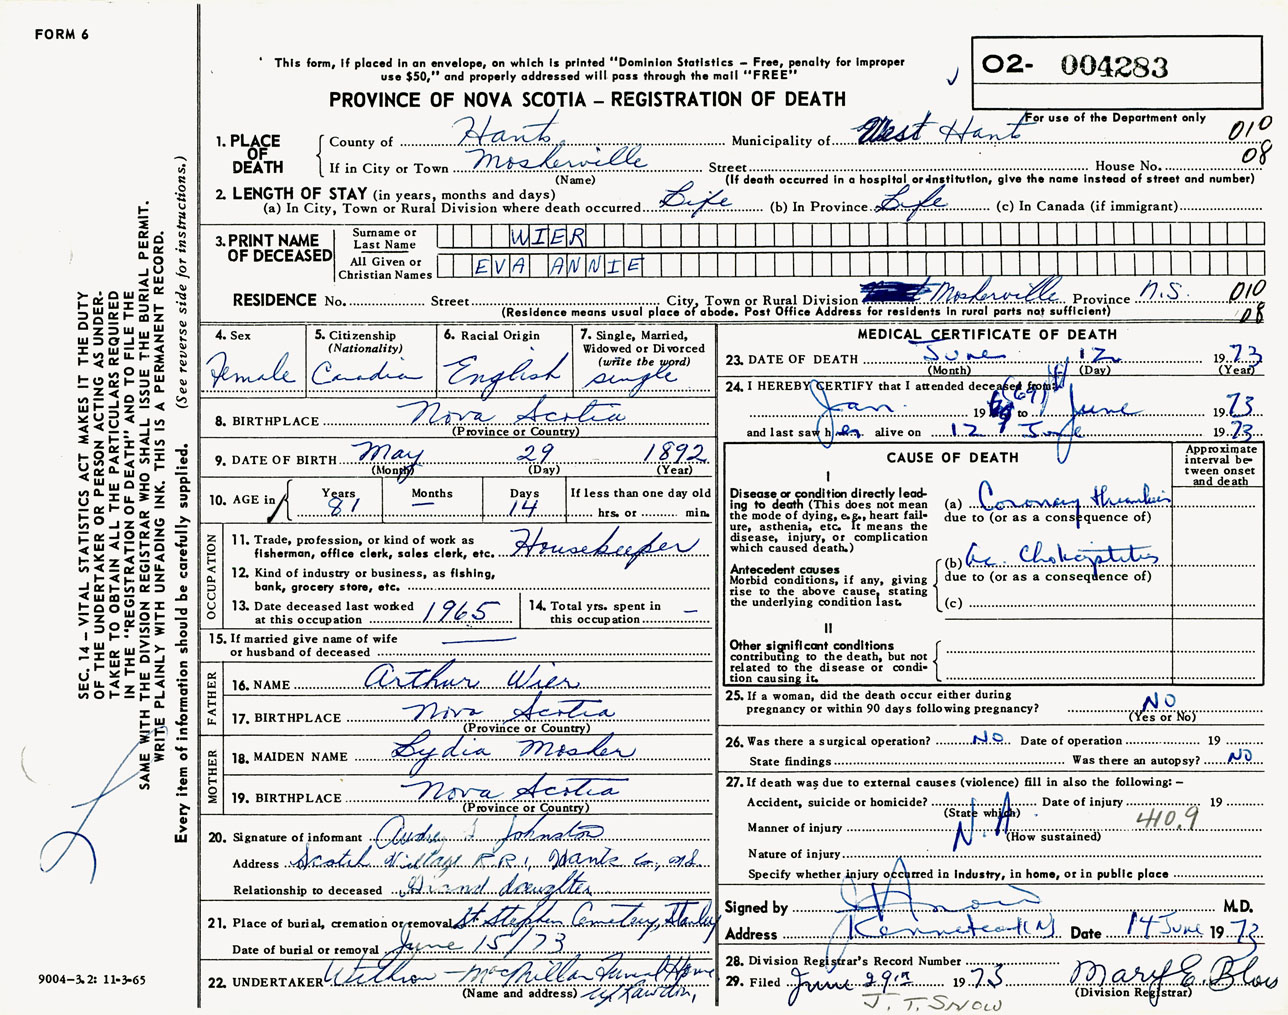 FORM 6
This form, if placed in an envelope, on which is printed "Dominion Statistics – Free, penalty for improper
use $50," and properly addressed will pass through the mail "FREE"
PROVINCE OF NOVA SCOTIA – REGISTRATION OF DEATH
02- 004283
For use of the Department only
010
08
1. PLACE OF DEATH
County of Hants Municipality of West Hants
If in City or Town Mosherville Street House No.
(Name) (If death occurred in a hospital or institution, give the name instead of street and number)
2. LENGTH OF STAY (in years, months and days)
(a) In City, Town or Rural Division where death occurred Life (b) In Province Life (c) In Canada (if immigrant)
3. PRINT NAME OF DECEASED
Surname or Last Name WIER
All Given or Christian Names EVA ANNIE
RESIDENCE No. Street City, Town or Rural Division Mosherville Province N.S. 010
(Residence means usual place of abode. Post Office Address for residents in rural parts not sufficient) 08
4. Sex Female
5. Citizenship (Nationality) Canadia
6. Racial Origin English
7. Single, Married, Widowed or Divorced (write the word) single
8. BIRTHPLACE Nova Scotia
(Province or Country)
9. DATE OF BIRTH May 29 1892
(Month) (Day) (Year)
10. AGE in Years 81 Months — Days 14 If less than one day old
hrs. or min.
OCCUPATION
11. Trade, profession, or kind of work as
fisherman, office clerk, sales clerk, etc. Housekeeper
12. Kind of industry or business, as fishing,
bank, grocery store, etc.
13. Date deceased last worked at this occupation 1965
14. Total yrs. spent in this occupation –
15. If married give name of wife
or husband of deceased —
FATHER
16. NAME Arthur Wier
17. BIRTHPLACE Nova Scotia
(Province or Country)
MOTHER
18. MAIDEN NAME Lydia Mosher
19. BIRTHPLACE Nova Scotia
(Province or Country)
20. Signature of informant Audrey Johnston
Address Scotch Village R.R. 1, Hants Co., N.S.
Relationship to deceased Grand daughter
21. Place of burial, cremation or removal St. Stephen Cemetery, Stanley
Date of burial or removal June 15/73
22. UNDERTAKER MacMillan Funeral Home
(Name and address) Rawdon,
MEDICAL CERTIFICATE OF DEATH
23. DATE OF DEATH June 12 1973
(Month) (Day) (Year)
24. I HEREBY CERTIFY that I attended deceased from:
Jan. 19 (69) to June 1973
and last saw her alive on 12 June 1973
CAUSE OF DEATH
Approximate interval between onset and death
I
Disease or condition directly lead-
ing to death (This does not mean
the mode of dying, e.g., heart fail-
ure, asthenia, etc. It means the
disease, injury, or complication
which caused death.)
(a) Coronary
due to (or as a consequence of)
Antecedent causes
Morbid conditions, if any, giving
rise to the above cause, stating
the underlying condition last.
(b) Ac.
due to (or as a consequence of)
(c)
II
Other significant conditions
contributing to the death, but not
related to the disease or condi-
tion causing it.
25. If a woman, did the death occur either during
pregnancy or within 90 days following pregnancy? NO
(Yes or No)
26. Was there a surgical operation? NO Date of operation 19
State findings Was there an autopsy? NO
27. If death was due to external causes (violence) fill in also the following: –
Accident, suicide or homicide? Date of injury 19
(State which)
Manner of injury N.A 410.9
(How sustained)
Nature of injury
Specify whether injury occurred in industry, in home, or in public place
Signed by M.D.
Address Date 14 June 1973
28. Division Registrar's Record Number
29. Filed June 29th 1973 Mary E. Blois
(Division Registrar)
J. T. SNOW
SEC. 14 – VITAL STATISTICS ACT MAKES IT THE DUTY
OF THE UNDERTAKER OR PERSON ACTING AS UNDER-
TAKER TO OBTAIN ALL THE PARTICULARS REQUIRED
IN THE "REGISTRATION OF DEATH" AND TO FILE THE
SAME WITH THE DIVISION REGISTRAR WHO SHALL ISSUE THE BURIAL PERMIT.
WRITE PLAINLY WITH UNFADING INK. THIS IS A PERMANENT RECORD.
Every item of information should be carefully supplied. (See reverse side for instructions.)
9004-3.2: 11-3-65